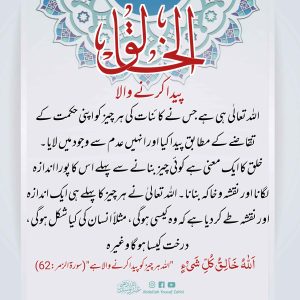 الخالق
پیدا کرنے والا
اللہ تعالٰی ہی ہے جس نے کائنات کی ہر چیز کو اپنی حکمت کے
تقاضے کے مطابق پیدا کیا اور انہیں عدم سے وجود میں لایا۔
خلق کا ایک معنی ہے کوئی چیز بنانے سے پہلے اس کا پورا اندازہ
لگانا اور نقشہ و خاکہ بنانا۔ اللہ تعالٰی نے ہر چیز کا پہلے ہی ایک اندازہ
اور نقشہ طے کردیا ہے کہ وہ کیسی ہوگی، مثلاً انسان کی کیا شکل ہوگی،
درخت کیسا ہوگا وغیرہ
اَللّٰهُ خَالِقُ كُلِّ شَیْءٍ "اللہ ہر چیز کو پیدا کرنے والا ہے" (سورۃ الزمر:62)
Abdullah Yousaf Zahbi